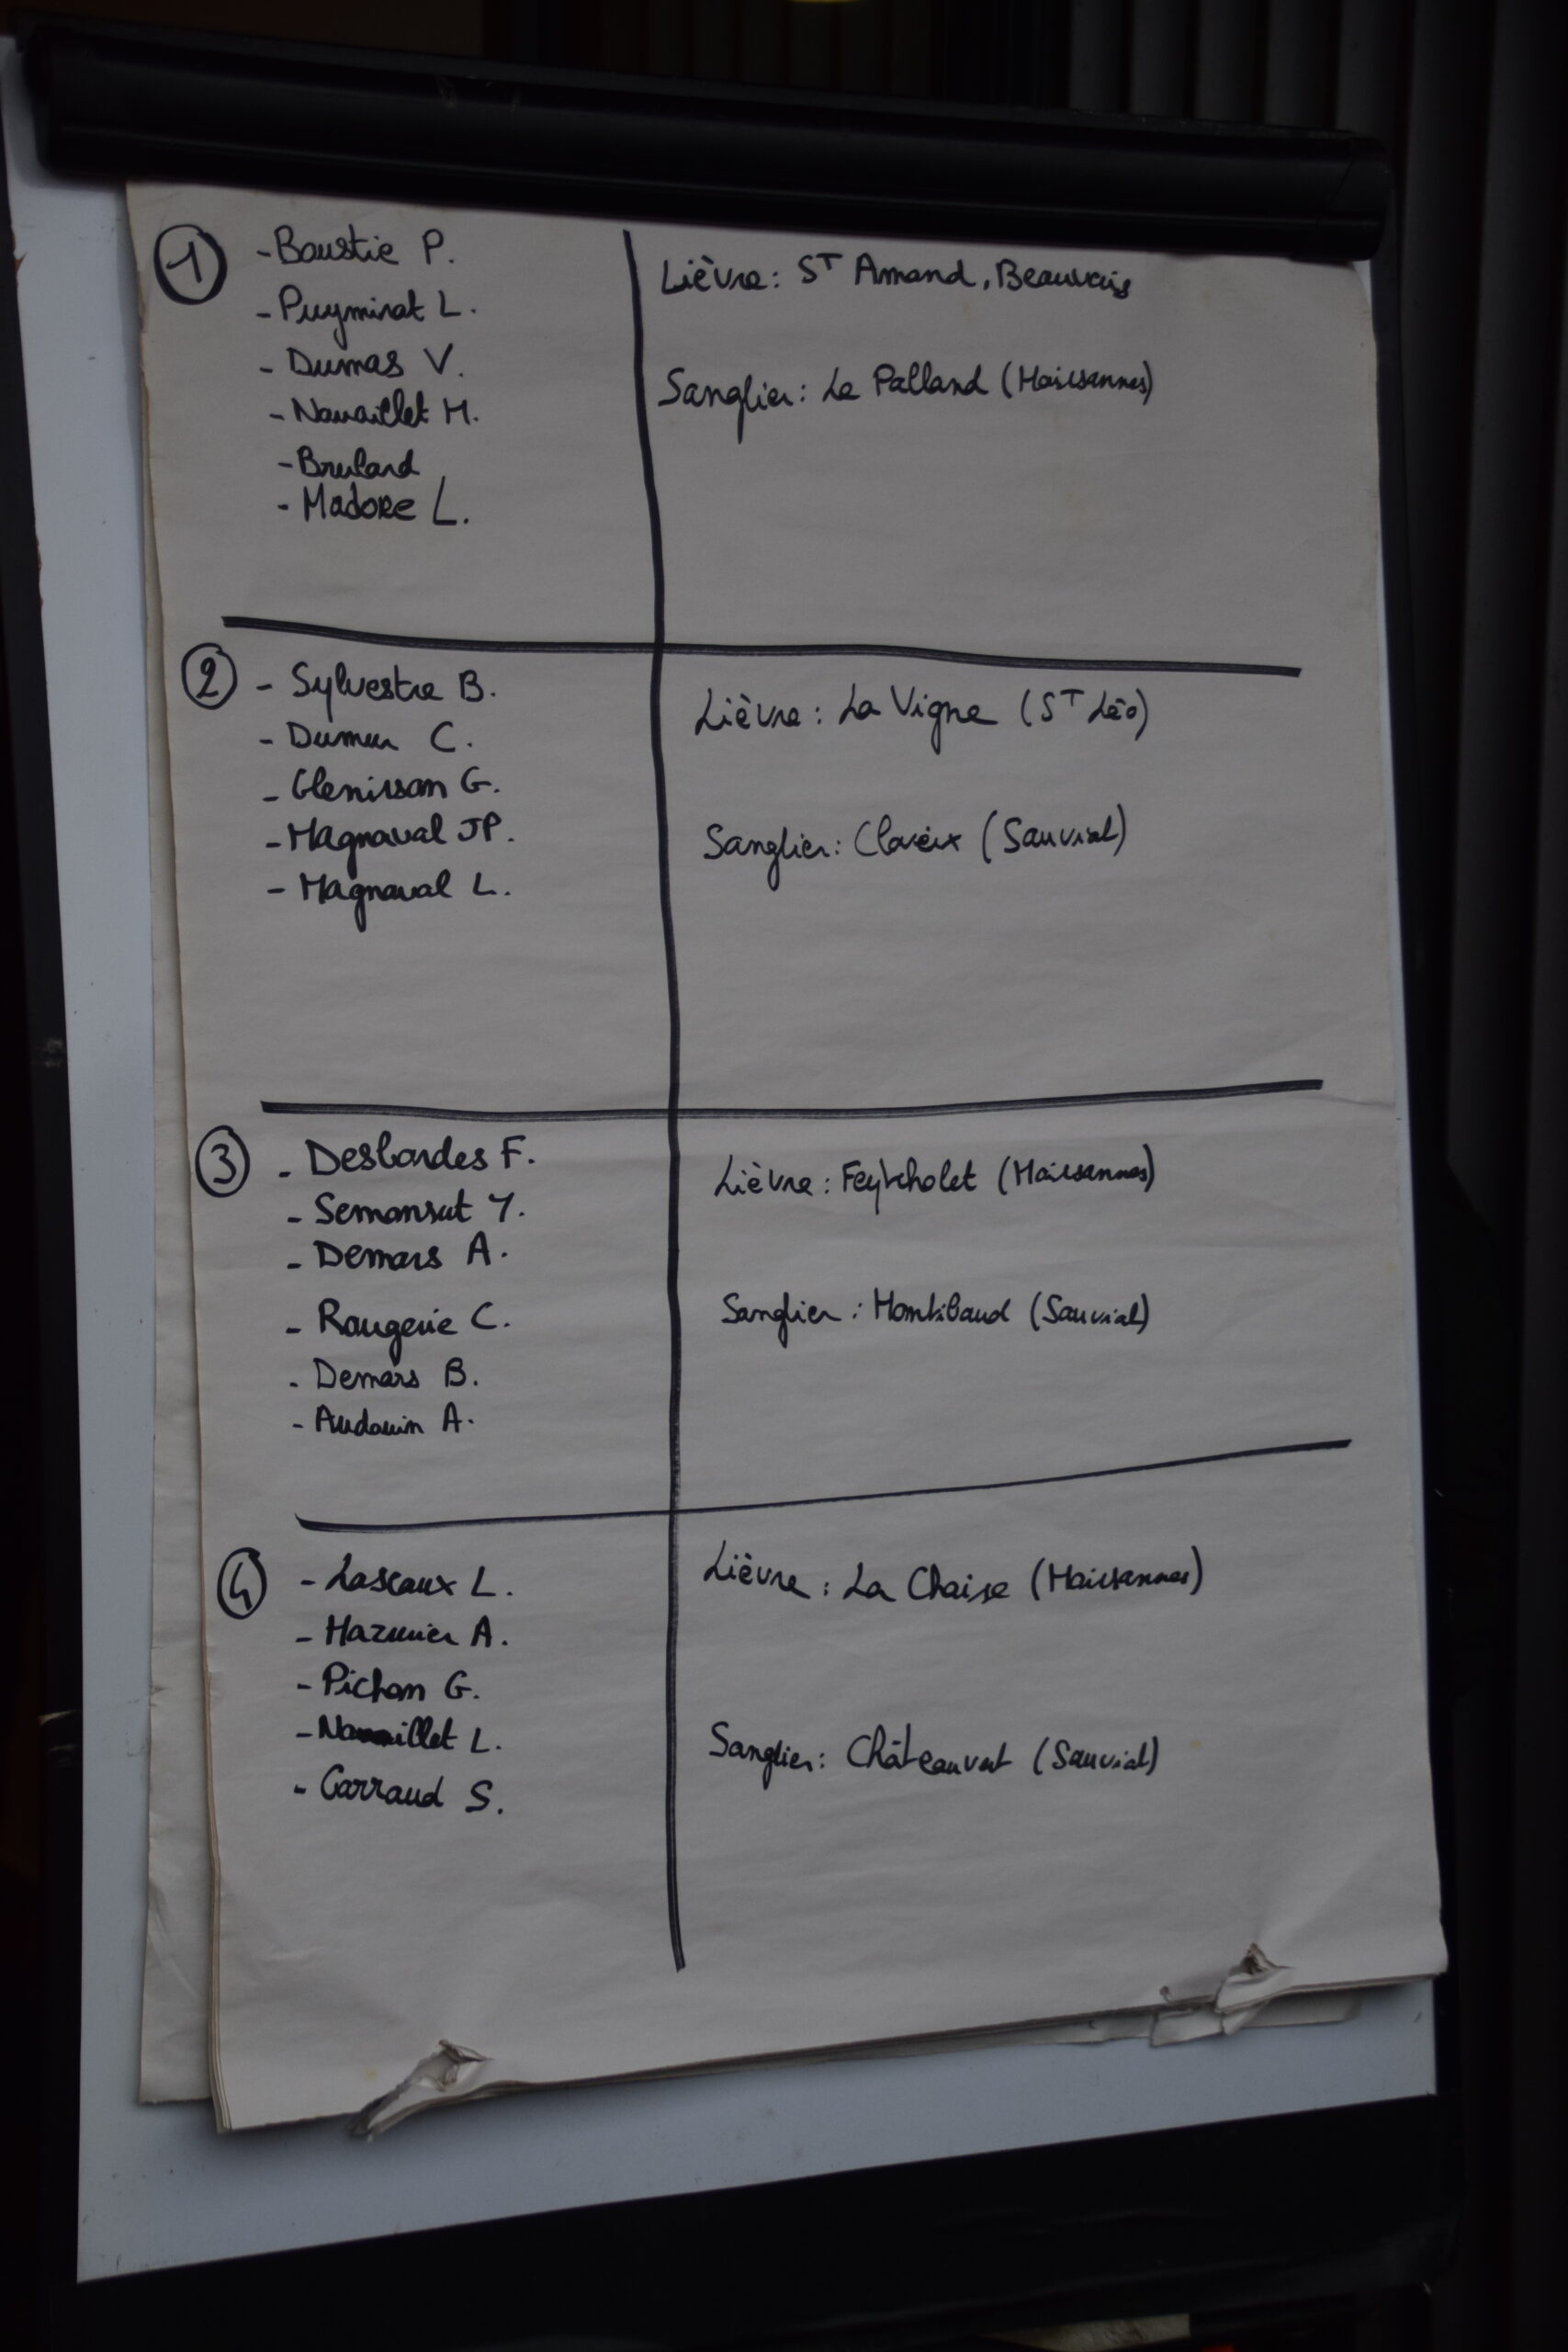 1
- Boustie P.
- Puymirat L.
- Dumas V.
- Navaillet M.
- Brulard
- Madore L.
Lièvre : St Amand, Beauvais
Sanglier : Le Palland (Mairsannes)
2
- Sylvestre B.
- Dumur C.
- Glenisson G.
- Magnaval JP.
- Magnaval L.
Lièvre : La Vigne (St Léo)
Sanglier : Claveix (Sauviat)
3
- Desbordes F.
- Semonsut Y.
- Demars A.
- Rougerie C.
- Demars B.
- Audouin A.
Lièvre : Feytcholet (Mairsannes)
Sanglier : Montibaud (Sauviat)
4
- Lascaux L.
- Mazurier A.
- Pichon G.
- Navaillet L.
- Garraud S.
Lièvre : La Chaise (Mairsannes)
Sanglier : Châteauvert (Sauviat)